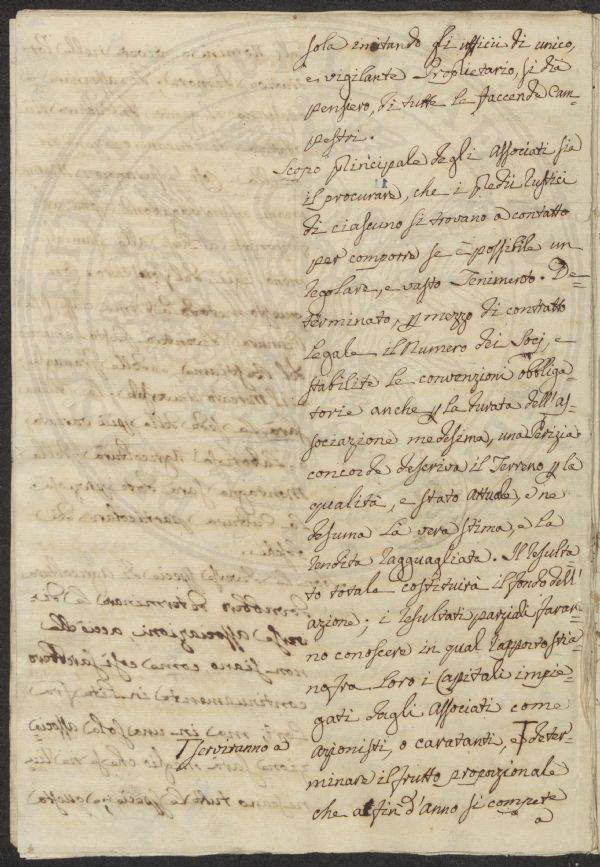 sola imitando gli ufficii di unico,
e vigilante Proprietario, si dia
pensiero, di tutte le faccende Cam=
pestri.
Scopo principale degli Associati sia
il procurare, che i Predii rustici
di ciascuno si trovano a contatto
per comporre se è possibile un
regolare, e vasto Tenimento. De=
terminato, p mezzo di contratto
legale il Numero dei Socj, e
stabilite le convenzioni obbliga=
torie anche p la durata dell'as=
sociazione medesima, una Perizia
concorde descriva il Terreno p la
qualità, e stato attuale, e ne
desuma la vera stima, e la
rendita ragguagliata. Il resulta
to totale costituirà il fondo dell'
azione; i resultati parziali faran=
no conoscere in qual rapporto stia=
no fra loro i Capitali impie=
gati dagli Associati come
azionisti, o caratanti, e determ=
minare il frutto proporzionale
che a fin d'anno si compete
a
serviranno a